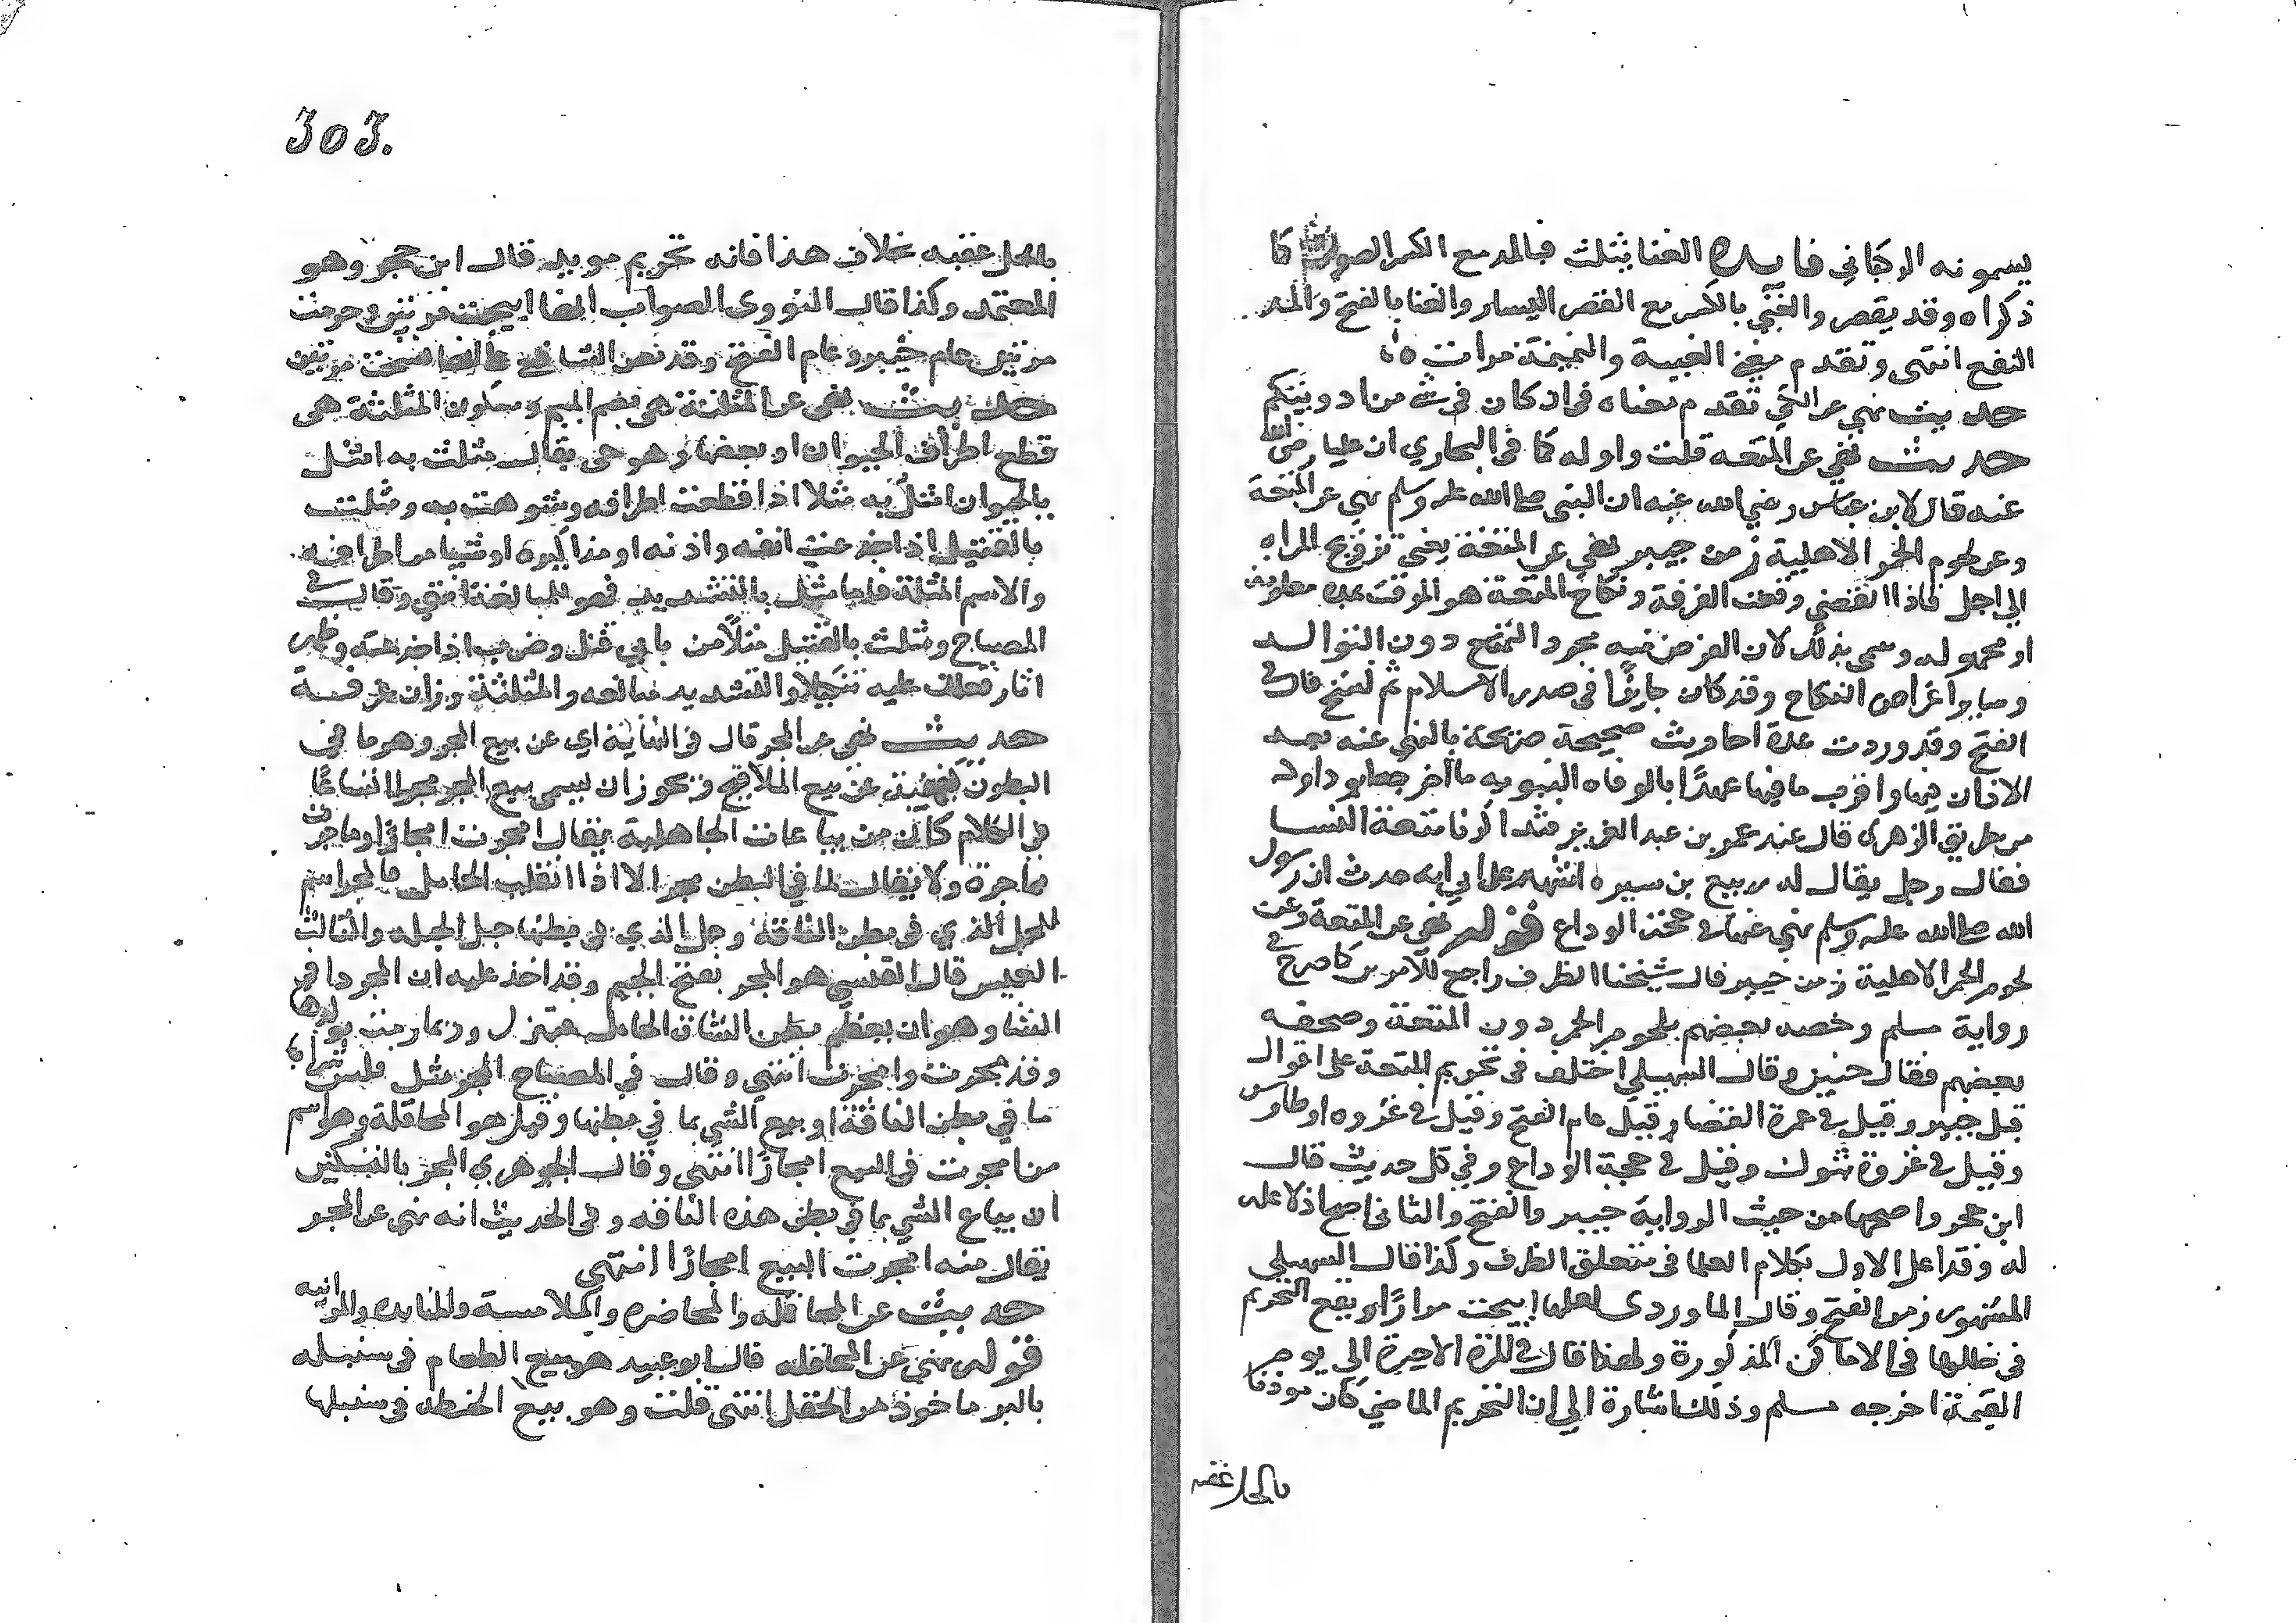 يسمونه الركباني فايده الغنا يثلث فبالمد مع الكسر الصوت كما
ذكراه وقد يقصر والغني بالكسر مع القصر اليسار والغنا بالفتح والمد
النفع انتهى وتقدم معنى الغيبة والنميمة مرات
حديث نهى عن الكي تقدم معناه في ان كان في شي من ادويتكم
حديث نهى عن المتعه قلت واوله كما في البخاري ان عليا رضى الله
عنه قال لابن عباس رضي الله عنه ان النبى صلى الله عليه وسلم نهى عن المتعة
وعن لحوم الحمر الاهلية زمن خيبر نهى عن المتعة يعنى تزويج المراه
الى اجل فاذا انقضى وقعت الفرقة ونكاح المتعة هو الموقت بمده معلومه
او مجهوله وسمى بذلك لان الغرض فيه مجرد التمتع دون التوالد
وساير اغراض النكاح وقد كان جايزًا في صدر الاسلام ثم نسخ قال في
الفتح وقد وردت عدة احاديث صحيحة صريحة بالنهي عنه بعد
الاذان فيها واقرب ما فيها عهدًا بالوفاه النبويه ما اخرجه ابو داود
من طريق الزهرى قال عند عمر بن عبد العزيز فتذاكرنا متعة النسا
فقال رجل يقال له ربيع بن سبره اشهد على ابي انه حدث ان رسول
الله صلى الله عليه وسلم نهى عنها في حجة الوداع قوله نهى عن المتعة وعن
لحوم الحمر الاهلية زمن خيبر قال شيخنا الظرف راجع للامرين كما صرح في
رواية مسلم وخصه بعضهم بلحوم الحمر دون المتعة وصحفه
بعضهم فقال حنين وقال السهيلي اختلف في تحريم المتعة على اقوال
قيل خيبر وقيل في عمرة القضا وقيل عام الفتح وقيل في غزوه اوطاس
وقيل في غزوة تبوك وقيل في حجة الوداع وفي كل حديث قال
ابن حجر واصحها من حيث الرواية خيبر والفتح والثاني اصح اذ لا عله
له وقد اعل الاول بكلام العلما في متعلق الظرف وكذا قال السهيلي
المشهور زمن الفتح وقال الماوردى لعلها ابيحت مرارًا ويقع التحريم
في خللها في الاماكن المذكورة ولهذا قال في المرة الاخيرة الى يوم
القيمة اخرجه مسلم وذلك اشارة الى ان التحريم الماضي كان موذنا
بالحل عقبه
303.
بالحل عقبه بخلاف هذا فانه تحريم مويد قال ابن حجر وهو
المعتمد وكذا قال النووى الصواب انها ابيحت مرتين وحرمت
مرتين عام خيبر وعام الفتح وقد نص الشافعي على انها نسخت مرتين
حديث نهى عن المثلة هي بضم الميم وسكون المثلثة هى
قطع اطراف الحيوان او بعضها وهو حى يقال مثلت به امثل
بالحيوان امثل به مثلا اذا قطعت اطرافه وشوهت به ومثلت
بالقتيل اذا جدعت انفه واذنه او مذاكيره او شيا من اطرافه
والاسم المثلة فاما مثل بالتشديد فهو للمبالغة انتهى وقال في
المصباح ومثلت بالقتيل مثلاً من بابي قتل وضرب اذا جدعته وظهر
اثار فعلك عليه تنكيلا والتشديد مبالغه والمثلة وزان غرفة
حديث نهى عن المجر قال في النهاية اي عن بيع المجر وهو ما في
البطون كنهيه عن بيع الملاقيح ويجوز ان يسمى بيع المجر مجرا اتساعًا
في الكلام كان من بياعات الجاهلية يقال امجرت امجارًا وماجرت
مماجرة ولا يقال لما في البطن مجر الا اذا اثقلت الحامل فالمجر اسم
للحمل الذي في بطن الناقة وحمل الذي في بطنها حبل الحبله والثالث
الغميس قال القتبي هو المجر بفتح الجيم وقد اخذ عليه ان المجر دا في
الشا وهو ان يعظم بطن الشاة الحامل فتهزل وربما رمت بولدها
وقد مجرت وامجرت انتهى وقال في المصباح المجر مثل فلس شراء
ما في بطن الناقة او بيع الشي بما في بطنها وقيل هو المحاقلة وهو اسم
من امجرت في البيع امجارًا انتهى وقال الجوهري المجر بالتسكين
ان يباع الشي بما في بطن هذه الناقه وفي الحديث انه نهى عن المجر
يقال منه امجرت البيع امجارًا انتهى
حديث عن المحاقله والمخاضره والملامسة والمنابده والمزابنه
قوله نهى عن المحاقله قال ابو عبيد هو بيع الطعام في سنبله
بالبر ماخوذ من الحقل انتهى قلت وهو بيع الحنطه في سنبلها